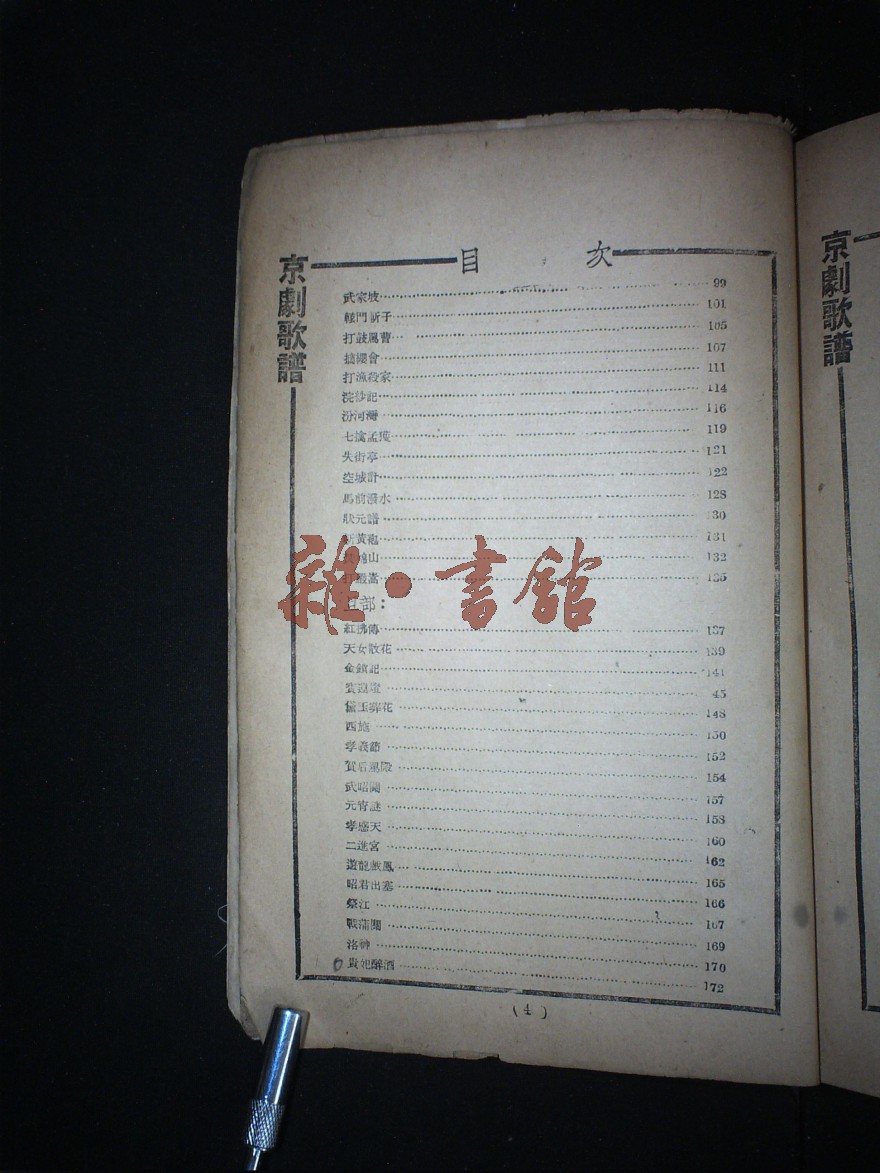 京劇歌譜
目 次
武家坡 99
轅門斬子 101
打鼓罵曹 105
摘纓會 107
打漁殺家 111
浣紗記 114
汾河灣 116
七擒孟獲 119
失街亭 121
空城計 122
馬前潑水 128
狀元譜 130
斬黃袍 131
山 132
嚴嵩 135
旦部:
紅拂傳 137
天女散花 139
金鎖記 141
45
黛玉葬花 148
西施 150
孝義節 152
賀后罵殿 154
武昭關 157
元宵謎 158
孝感天 160
二進宮 162
遊龍戲鳳 165
昭君出塞 166
祭江 167
戰蒲關 169
洛神 170
貴妃醉酒 172
(4)
京劇歌譜
雜·書館